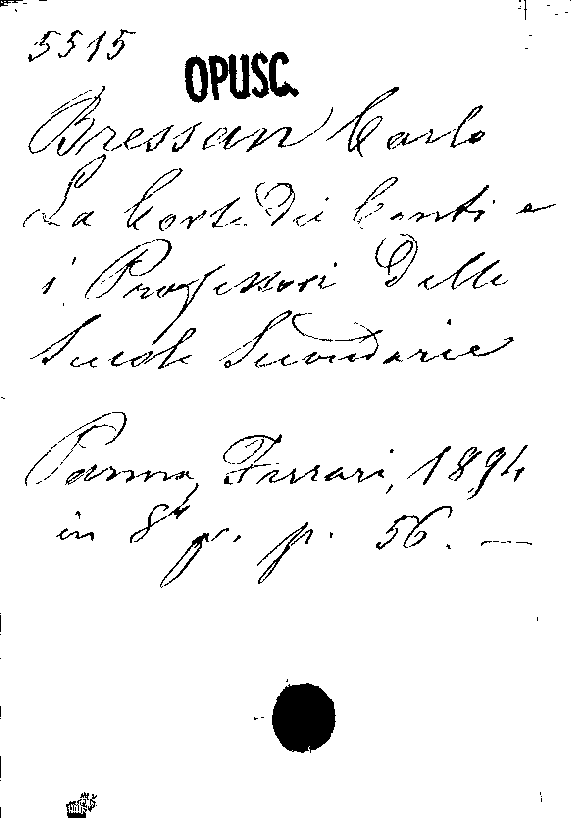 5515
OPUSC.
Bressan Carlo
La Corte dei Conti e
i Professori delle
Scuole Secondarie
Parma, Ferrari, 1894
in 8° p. p. 56. —